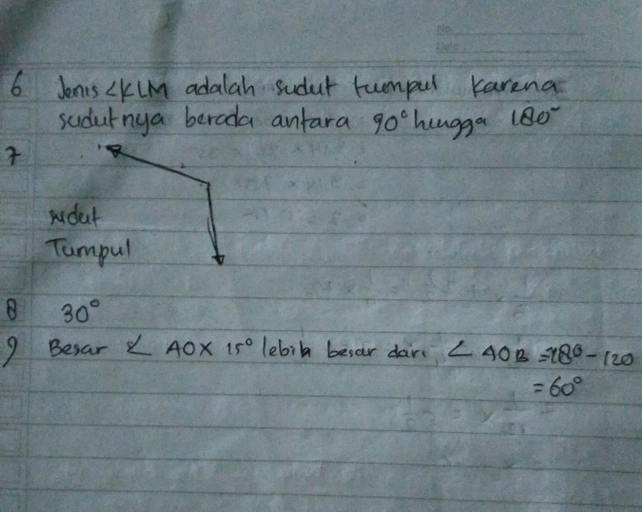 No.
Date
6 Jenis ∠KLM adalah sudut tumpul karena
sudutnya berada antara 90° hingga 180°
7
sudut
Tumpul
8 30°
9 Besar ∠ AOX 15° lebih besar dari ∠ AOB = 180 - 120
= 60°